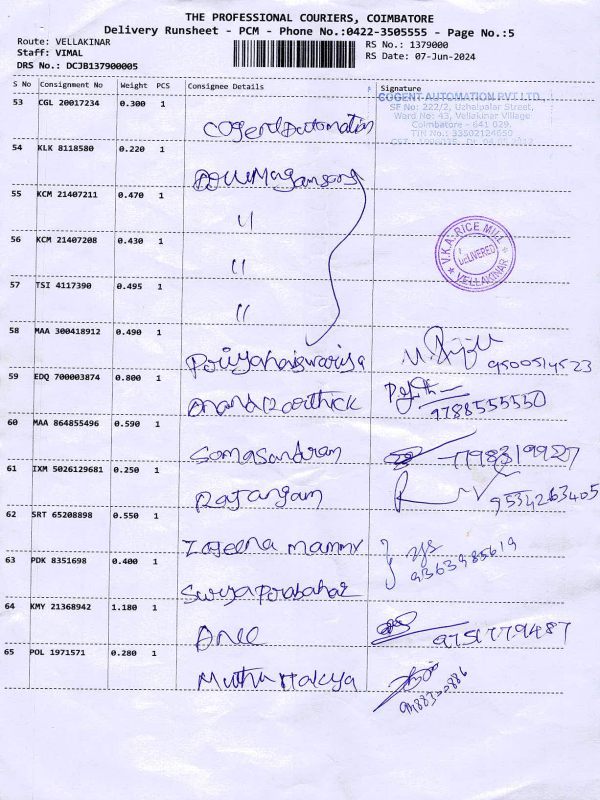 THE PROFESSIONAL COURIERS, COIMBATORE
Delivery Runsheet - PCM - Phone No.:0422-3505555 - Page No.:5
Route: VELLAKINAR RS No.: 1379000
Staff: VIMAL RS Date: 07-Jun-2024
DRS No.: DCJB137900005
S No Consignment No Weight PCS Consignee Details Signature
53 CGL 20017234 0.300 1 Cogent Automation
COGENT AUTOMATION PVT LTD.,
SF No: 222/2, Uzhaipalar Street,
Ward No: 43, Vellakinar Village
Coimbatore - 641 029.
TIN No.: 33502124650
54 KLK 8118580 0.220 1
55 KCM 21407211 0.470 1 "
56 KCM 21407208 0.430 1 "
V.K.A. RICE MILL
DELIVERED
VELLAKINAR
57 TSI 4117390 0.495 1 "
58 MAA 300418912 0.490 1 9500514523
59 EDQ 700003874 0.800 1 Anand Karthick
60 MAA 864855496 0.590 1 Somasandram
61 IXM 5026129681 0.250 1 Rajangam 9534263405
62 SRT 65208898 0.550 1 mammy 9363985619
63 PDK 8351698 0.400 1 Suryaprabahar
64 KMY 21368942 1.180 1 9751779487
65 POL 1971571 0.280 1 Muthu